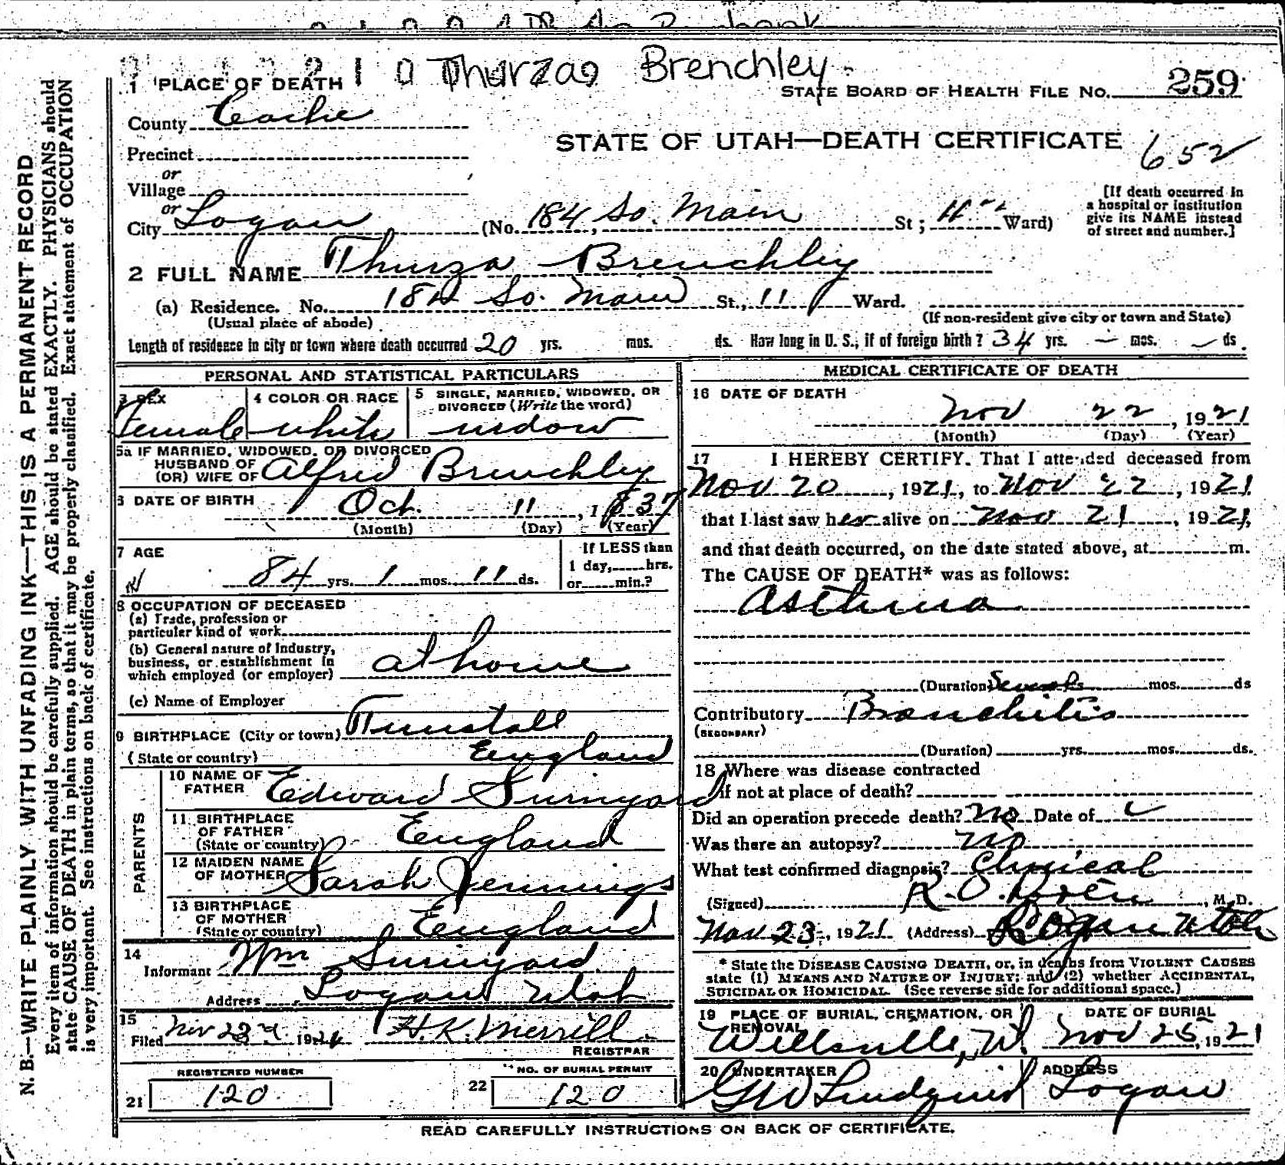 Thurza Brenchley
1 PLACE OF DEATH
STATE BOARD OF HEALTH FILE NO. 259
County Cache
STATE OF UTAH—DEATH CERTIFICATE 652
Precinct
or
Village
or
City Logan (No. 184 So. Main St; 11 Ward)
[If death occurred in a hospital or institution give its NAME instead of street and number.]
2 FULL NAME Thurza Brenchley
(a) Residence. No. 184 So. Main St., 11 Ward.
(Usual place of abode) (If non-resident give city or town and State)
Length of residence in city or town where death occurred 20 yrs. mos. ds. How long in U. S., if of foreign birth? 34 yrs. — mos. — ds.
PERSONAL AND STATISTICAL PARTICULARS
3 SEX Female
4 COLOR OR RACE white
5 SINGLE, MARRIED, WIDOWED, OR DIVORCED (Write the word) widow
5a IF MARRIED, WIDOWED, OR DIVORCED
HUSBAND OF
(OR) WIFE OF Alfred Brenchley
6 DATE OF BIRTH Oct. 11, 1837
(Month) (Day) (Year)
7 AGE 84 yrs. 1 mos. 11 ds.
If LESS than
1 day, hrs.
or min.?
8 OCCUPATION OF DECEASED
(a) Trade, profession or
particular kind of work
(b) General nature of Industry,
business, or establishment in
which employed (or employer) at home
(c) Name of Employer
9 BIRTHPLACE (City or town) Tunstall
(State or country) England
PARENTS
10 NAME OF
FATHER Edward Sunnyard
11 BIRTHPLACE
OF FATHER
(State or country) England
12 MAIDEN NAME
OF MOTHER Sarah Jennings
13 BIRTHPLACE
OF MOTHER
(State or country) England
14
Informant Wm Sunnyard
Address Logan Utah
15
Filed Nov 23rd 192 H. K. Merrill
REGISTRAR
REGISTERED NUMBER
21 120
NO. OF BURIAL PERMIT
22 120
MEDICAL CERTIFICATE OF DEATH
16 DATE OF DEATH
Nov 22, 1921
(Month) (Day) (Year)
17 I HEREBY CERTIFY. That I attended deceased from
Nov 20, 1921, to Nov 22, 1921
that I last saw her alive on Nov 21, 1921,
and that death occurred, on the date stated above, at m.
The CAUSE OF DEATH* was as follows:
Asthma
(Duration) mos. ds
Contributory Bronchitis
(SECONDARY)
(Duration) yrs. mos. ds.
18 Where was disease contracted
if not at place of death?
Did an operation precede death? No Date of
Was there an autopsy? no
What test confirmed diagnosis? Clinical
(Signed) R. O. , M. D.
Nov 23, 1921 (Address) Logan Utah
* State the DISEASE CAUSING DEATH, or, in deaths from VIOLENT CAUSES
state (1) MEANS AND NATURE OF INJURY; and (2) whether ACCIDENTAL,
SUICIDAL OR HOMICIDAL. (See reverse side for additional space.)
19 PLACE OF BURIAL, CREMATION, OR REMOVAL
DATE OF BURIAL
Wellsville, Ut. Nov 25, 1921
20 UNDERTAKER ADDRESS
G W Lindquist Logan
READ CAREFULLY INSTRUCTIONS ON BACK OF CERTIFICATE.
N. B.—WRITE PLAINLY WITH UNFADING INK—THIS IS A PERMANENT RECORD
Every item of information should be carefully supplied. AGE should be stated EXACTLY. PHYSICIANS should
state CAUSE OF DEATH in plain terms, so that it may be properly classified. Exact statement of OCCUPATION
is very important. See instructions on back of certificate.